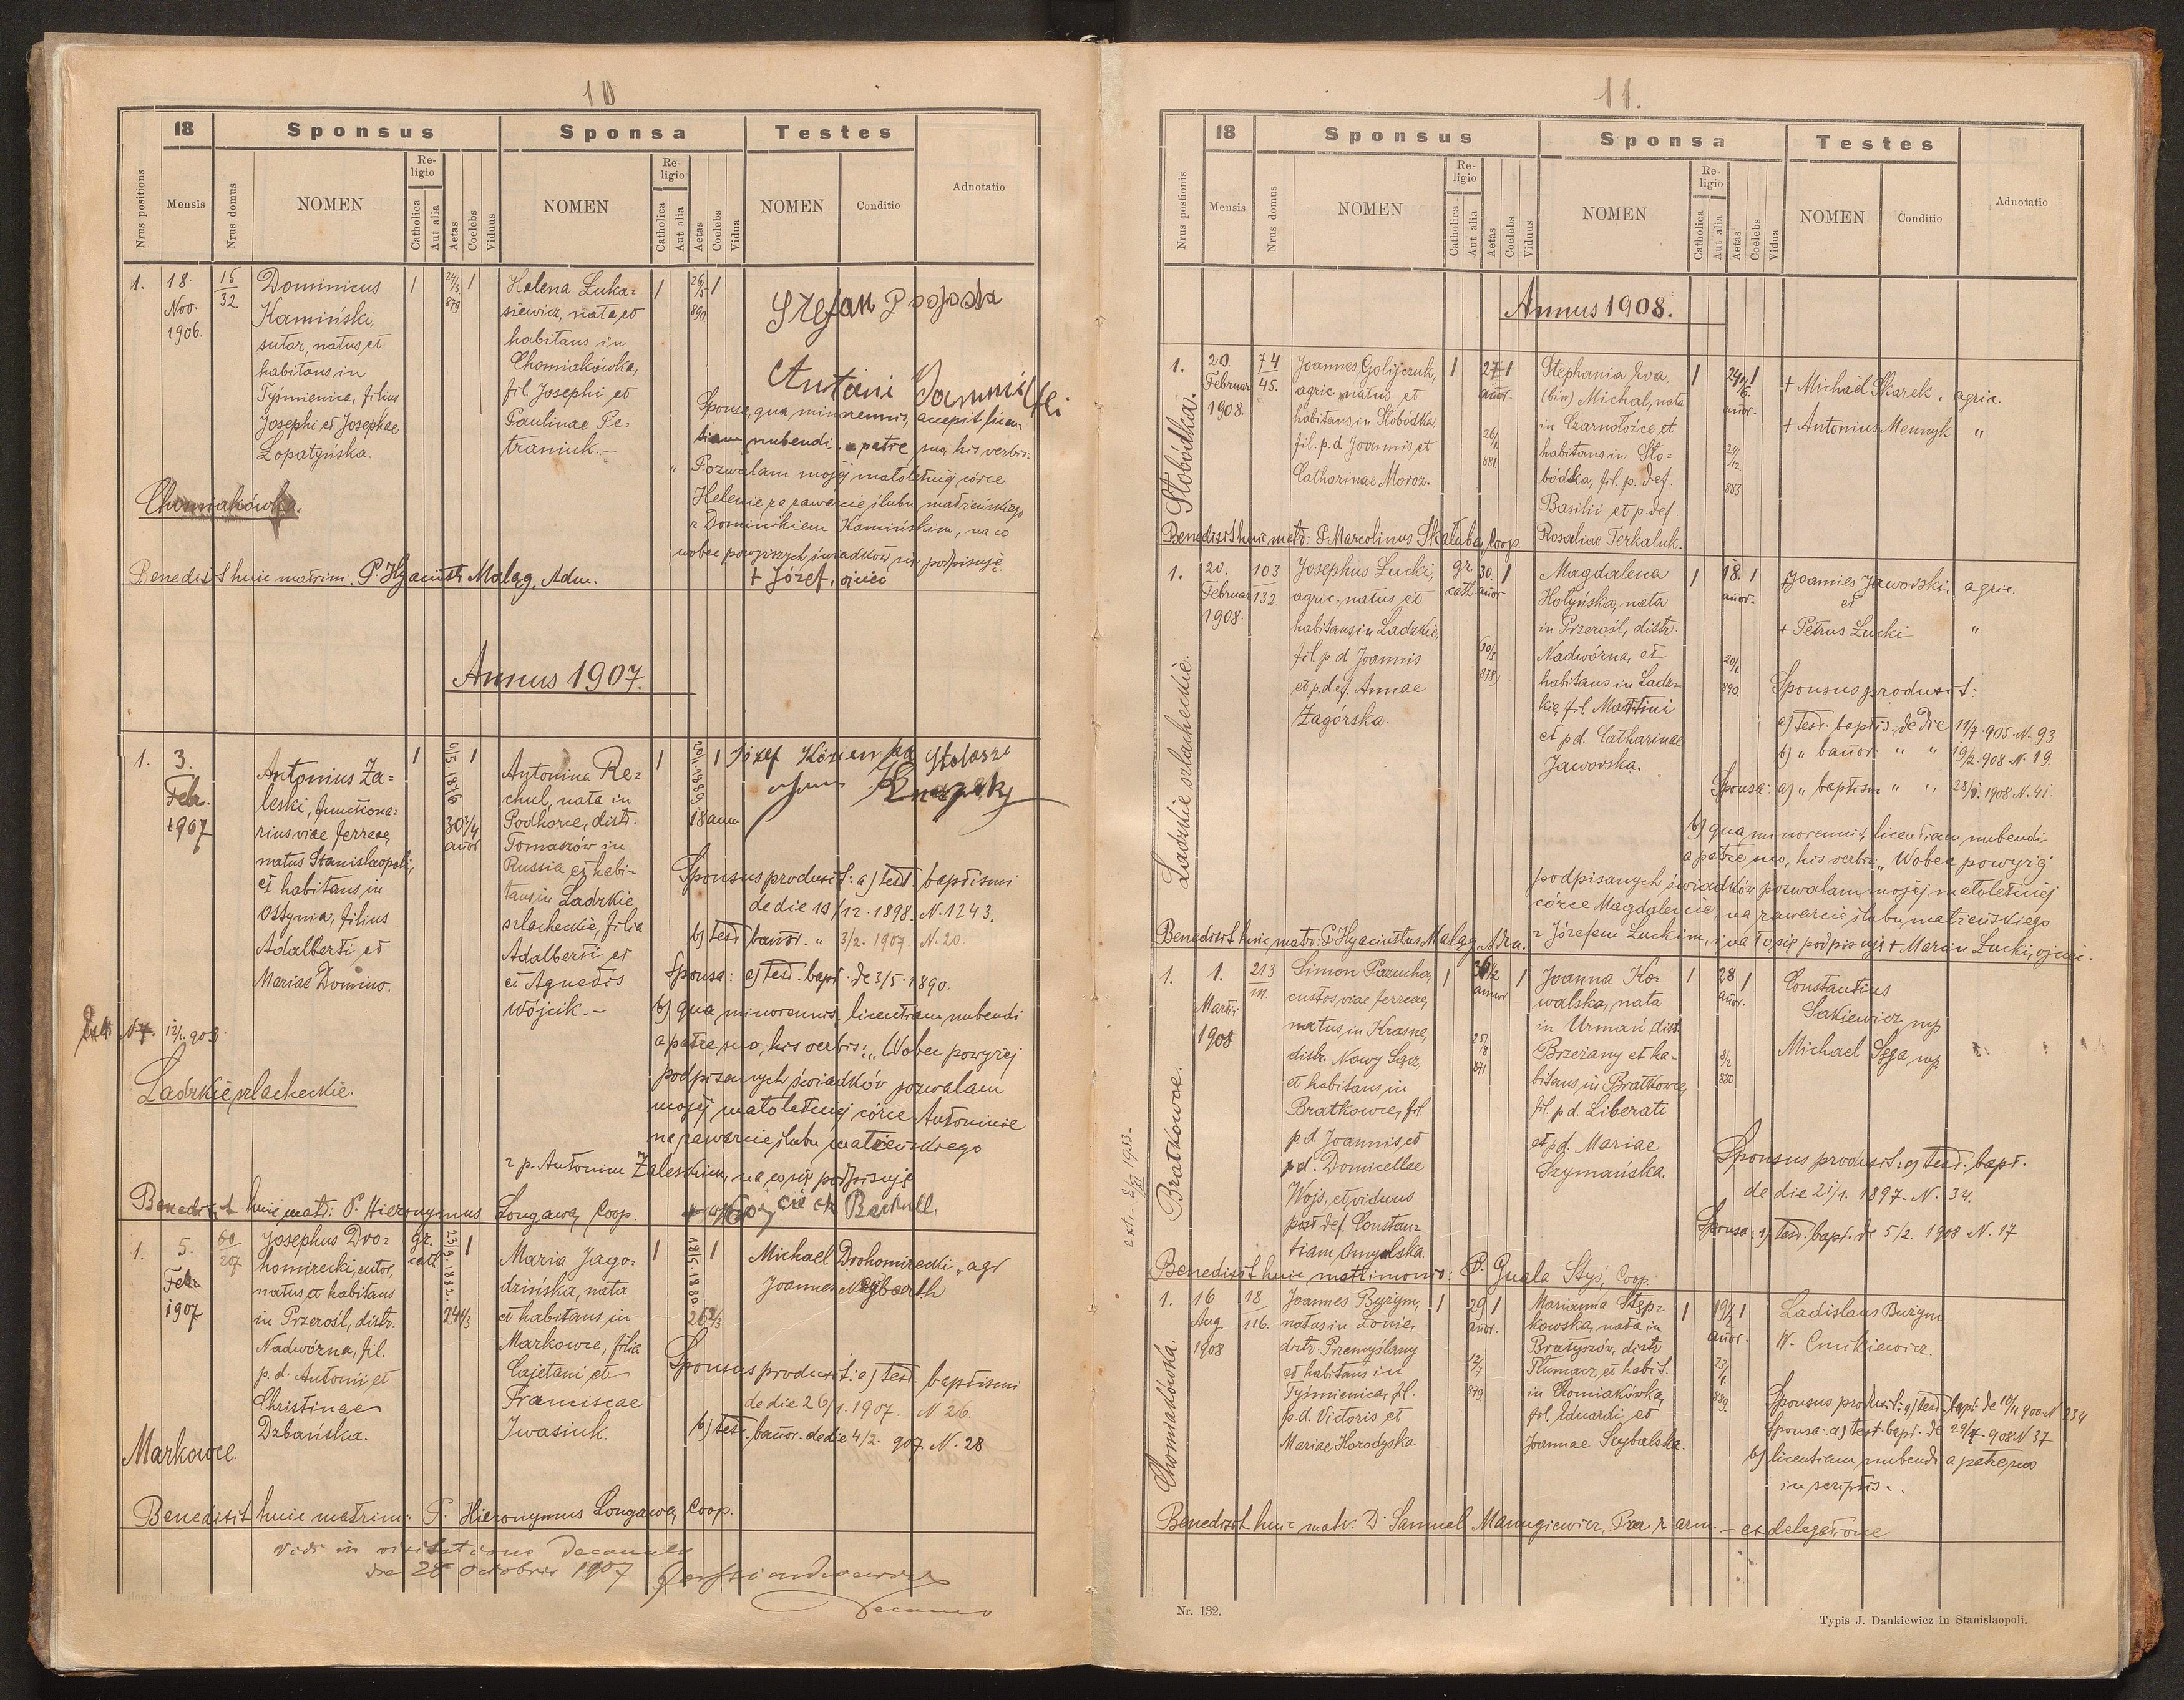 10
18
Sponsus
Sponsa
Testes
Nrus positions
Mensis
Nrus domus
NOMEN
Religio
Catholica
Aut alia
Aetas
Coelebs
Viduus
NOMEN
Religio
Catholica
Aut alia
Aetas
Coelebs
Vidua
NOMEN
Conditio
Adnotatio
1.
18.
Nov.
1906.
15
32
Dominicus
Kamiński,
sutor, natus et
habitans in
Tyśmienica, filius
Josephi et Josephae
Łopatyńska.
1
24/3
879
1
Helena Łuka=
siewicz, nata et
habitans in
Chomiakówka,
fil. Josephi et
Paulinae Pe=
traniuk.-
1
26/5
890
1
Stefan
Antoni
Sponsa, qua minorennis, accepit licen-
tiam nubendi a patre suo his verbis:
"Pozwalam mojéj małoletniej córce
Helenie za zawarcie ślubu małżeńskiego
z Dominikiem Kamińskim, na co
wobec powyższych świadków się podpisuję.
+ Józef, ojciec
Chomiakówka.
Benedixit huic matrim: P. Hyacinth Maląg, Adm.
Annus 1907.
1.
3.
Febr.
1907
Antonius Za=
leski, functiona=
rius viae ferreae,
natus Stanislaopoli,
et habitans in
Ottynia, filius
Adalberti et
Mariae Domino.
1
30 3/4
annor
1
Antonina Re=
chul, nata in
Podhorce, distr.
Tomaszów in
Russia et habi-
tans in Ladzkie
szlacheckie, filia
Adalberti et
et Agnetis
Wójcik.-
1
18 ann
1
Józef
Stolarz
Sponsus produxit: a) test. baptismi
de die 19/12. 1898. N. 1243.
b) test bannor. " 3/2. 1907. N. 20.
Sponsa: a) test. bapt. de 3/5. 1890.
b) qua minorennis, licentiam nubendi
a patre suo, his verbis: "Wobec powyżej
podpisanych świadków pozwalam
mojej małoletniej córce Antoninie
na zawarcie ślubu małżeńskiego
z p. Antonim Zaleskim, na co się podpisuję
Ladzkie szlacheckie.
Benedixit huic matr: P. Hieronymus Longawa, Coop.
1.
5.
Febr
1907
60
207
Josephus Dro=
homirecki, sutor,
natus et habitans
in Przerośl, distr.
Nadwórna, fil.
p. d. Antonii et
Christinae
Dzbańska.
gr.
cath
1
Maria Jago=
dzińska, nata
et habitans in
Markowce, filia
Cajetani et
Franciscae
Iwasiuk.
1
18/5 1880
1
Michael Drohomirecki, agr
Joannes
Sponsus produxit: a) test. baptismi
de die 26/1. 1907. N. 26.
b) test. bannor. de die 4/2. 907. N. 28
Markowce.
Benedixit huic matrim: P. Hieronymus Longawa, Coop.
Vidi in visitatione Decanali
die 28 Octobris 1907
Decanus
11.
18
Sponsus
Sponsa
Testes
Nrus postionis
Mensis
Nrus domus
NOMEN
Religio
Catholica
Aut alia
Aetas
Coelebs
Viduus
NOMEN
Religio
Catholica
Aut alia
Aetas
Coelebs
Vidua
NOMEN
Conditio
Adnotatio
Annus 1908.
Słobódka.
1.
20.
Februar
1908.
74
45.
Joannes Golijczuk,
agric. natus et
habitans in Słobódka,
fil. p. d Joannis et
Catharinae Moroz.
1
27
annor.
26/1
881
1
Stephania Eva,
(bin) Michal, nata
in Czarnołoźce et
habitans in Sło=
bódka, fil. p. def.
Basilii et p. def.
Rosaliae Terkaluk.
1
annor.
24/12
883
1
+ Michael Skarek, agric.
+ Antonius Mennyk "
Benedixit huic matr: P. Marcolinus Skałuba, Coop.
Ladzkie szlacheckie.
1.
20.
Februar
1908.
103
132.
Josephus Łucki,
agric. natus et
habitans in Ladzkie,
fil. p. d Joannis
et p. def. Annae
Zagórska.
gr.
cath
30.
annor
10/3
878
1
Magdalena
Hołyńska, nata
in Przerośl, distr.
Nadwórna, et
habitans in Ladz=
kie, fil Martini
et p d. Catharinae
Jaworska.
1
18.
annor.
890.
1
+ Joannes Jaworski, agric.
et
+ Petrus Łucki "
Sponsus produxit:
a) test. baptis. de die 11/7. 905. N. 93
b) " bannor. " " 19/2. 908 N. 19.
Sponsa: a) " baptism " " 28/1. 1908 N. 41.
b) qua minorennis, licentiam nubendi
a patre suo, his verbis: "Wobec powyżej
podpisanych świadków pozwalam mojéj małoletniéj
córce Magdalenie, na zawarcie ślubu małżeńskiego
z Józefem Łuckim, i na to się podpisuję + Marcin Łucki, ojciec.
Benedixit huic matr: P. Hyacinthus Maląg, Adm.
Bratkowce.
1.
1.
Martii
1908
213
111.
Simon Pazucha,
custos viae ferreae,
natus in Krasne,
distr. Nowy Sącz,
et habitans in
Bratkowce, fil
p. d Joannis et
p d. Domicellae
Wojs, et viduus
post def. Constan=
tiam Omylska
1
annor
25/8
871
1
Joanna Ko=
walska, nata
in Urmań dist.
Brzeżany et ha-
bitans in Bratkowce,
fil. p d. Liberati
et p d. Mariae
Dzymańska.
1
28
annor.
8/2
880
1
Constantius
Sakiewicz mp
Michael Sęga mp
Sponsus produxit: a) test. bapt.
de die 21/1. 1897. N. 34.
Sponsa: a) test. bapt. de 5/2. 1908 N. 17
Benedixit huic matrimonio: P. Guala Styś, Coop.
Chomiakówka.
1.
16
Aug.
1908
18
116.
Joannes Buzym,
natus in Łonie,
distr. Przemyślany
et habitans in
Tyśmienica, fil.
p. d. Victoris et
Mariae Horodyska
1
29
annor.
12/7
879
1
Marianna Stęp=
kowska, nata in
Bratyszów, distr
Tłumacz et habit.
in Chomiakówka,
fil. Eduardi et
Joannae Szybalska.
1
19 1/2
annor.
889.
1
Ladislaus Buzym
W. Cmikiewicz.
Sponsus produxit: a) test. bapt. de 10/11. 900 N 234
Sponsa: a) test bapt. de 29/7. 908 N 37
b) licentiam nubendi a patre suo
in scriptis.
Benedixit huic matr: D. Samuel Manugiewicz, r. arm. - ex delegatione
Nr. 132.
Typis J. Dankiewicz in Stanislaopoli.